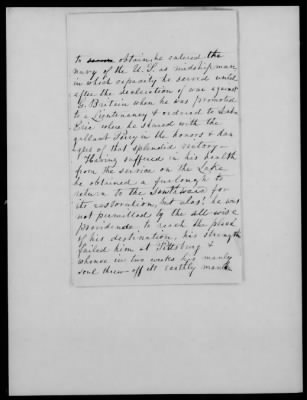 to obtain, he entered the
navy of the U.S. as midshipman
in which capacity he served until
after the declaration of war against
G. Britain when he was promoted
to a Lieutenancy & ordered to Lake
Erie where he shared with the
gallant Perry in the honors & dan-
gers of that splendid victory—
Having suffered in his health
from the service on the Lake,
he obtained a furlough to
return to the Southward for
its restoration, but alas! he was
not permitted by the all wise
providence, to reach the place
of his destination, his strength
failed him at Pittsburg &
whence in two weeks his manly
soul threw off its earthly mantle